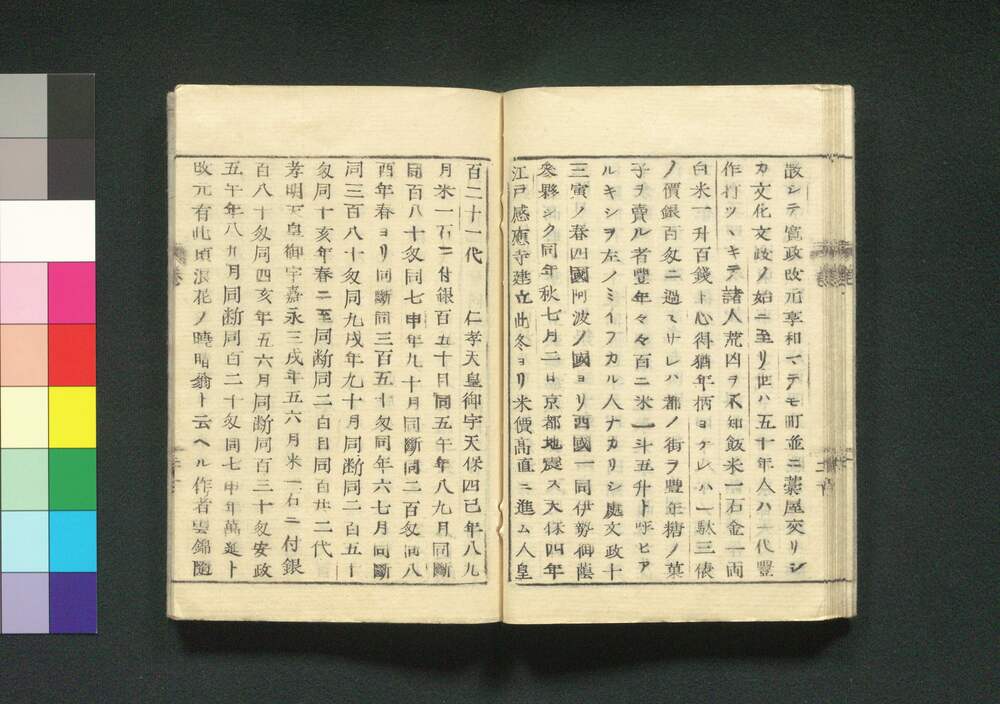 散シテ寛政改元享和マテモ町並ニ薬屋交リシ
カ文化文政ノ始ニ至リ世ハ五十年人ハ一代豊
作打ツヽキテ諸人荒凶ヲ不知飯米一石金一両
白米一升百錢ト心得猶年柄ヨケレハ一駄三俵
ノ價銀百匁ニ過サレハ都ノ街ヲ豊年糖ノ菓
子ヲ賣ル者豊年々々百ニ米一斗五升ト呼ヒア
ルキシヲ左ノミイフカル人ナカリシ處文政十
三寅ノ春四國阿波ノ國ヨリ西國一同伊勢御蔭
參夥シク同年秋七月二日京都地震ス天保四年
江戸感應寺建立此冬ヨリ米價高直ニ進ム人皇
百二十一代　仁孝天皇御宇天保四己年八九
月米一石ニ付銀百五十目同五午年八九月同斷
同百八十匁同七申年九十月同斷同二百匁同八
酉年春ヨリ同斷同三百五十匁同年六七月同斷
同三百八十匁同九戌年九十月同断同二百五十
匁同十亥年春ニ至同断同二百目同百廿二代
孝明天皇御宇嘉永三戌年五六月米一石ニ付銀
百八十匁同四亥年五六月同断同百三十匁安政
五午年八九月同断同百二十匁同七申年萬延ト
改元有此頃浪花ノ曉晴翁ト云ヘル作者雲錦隨